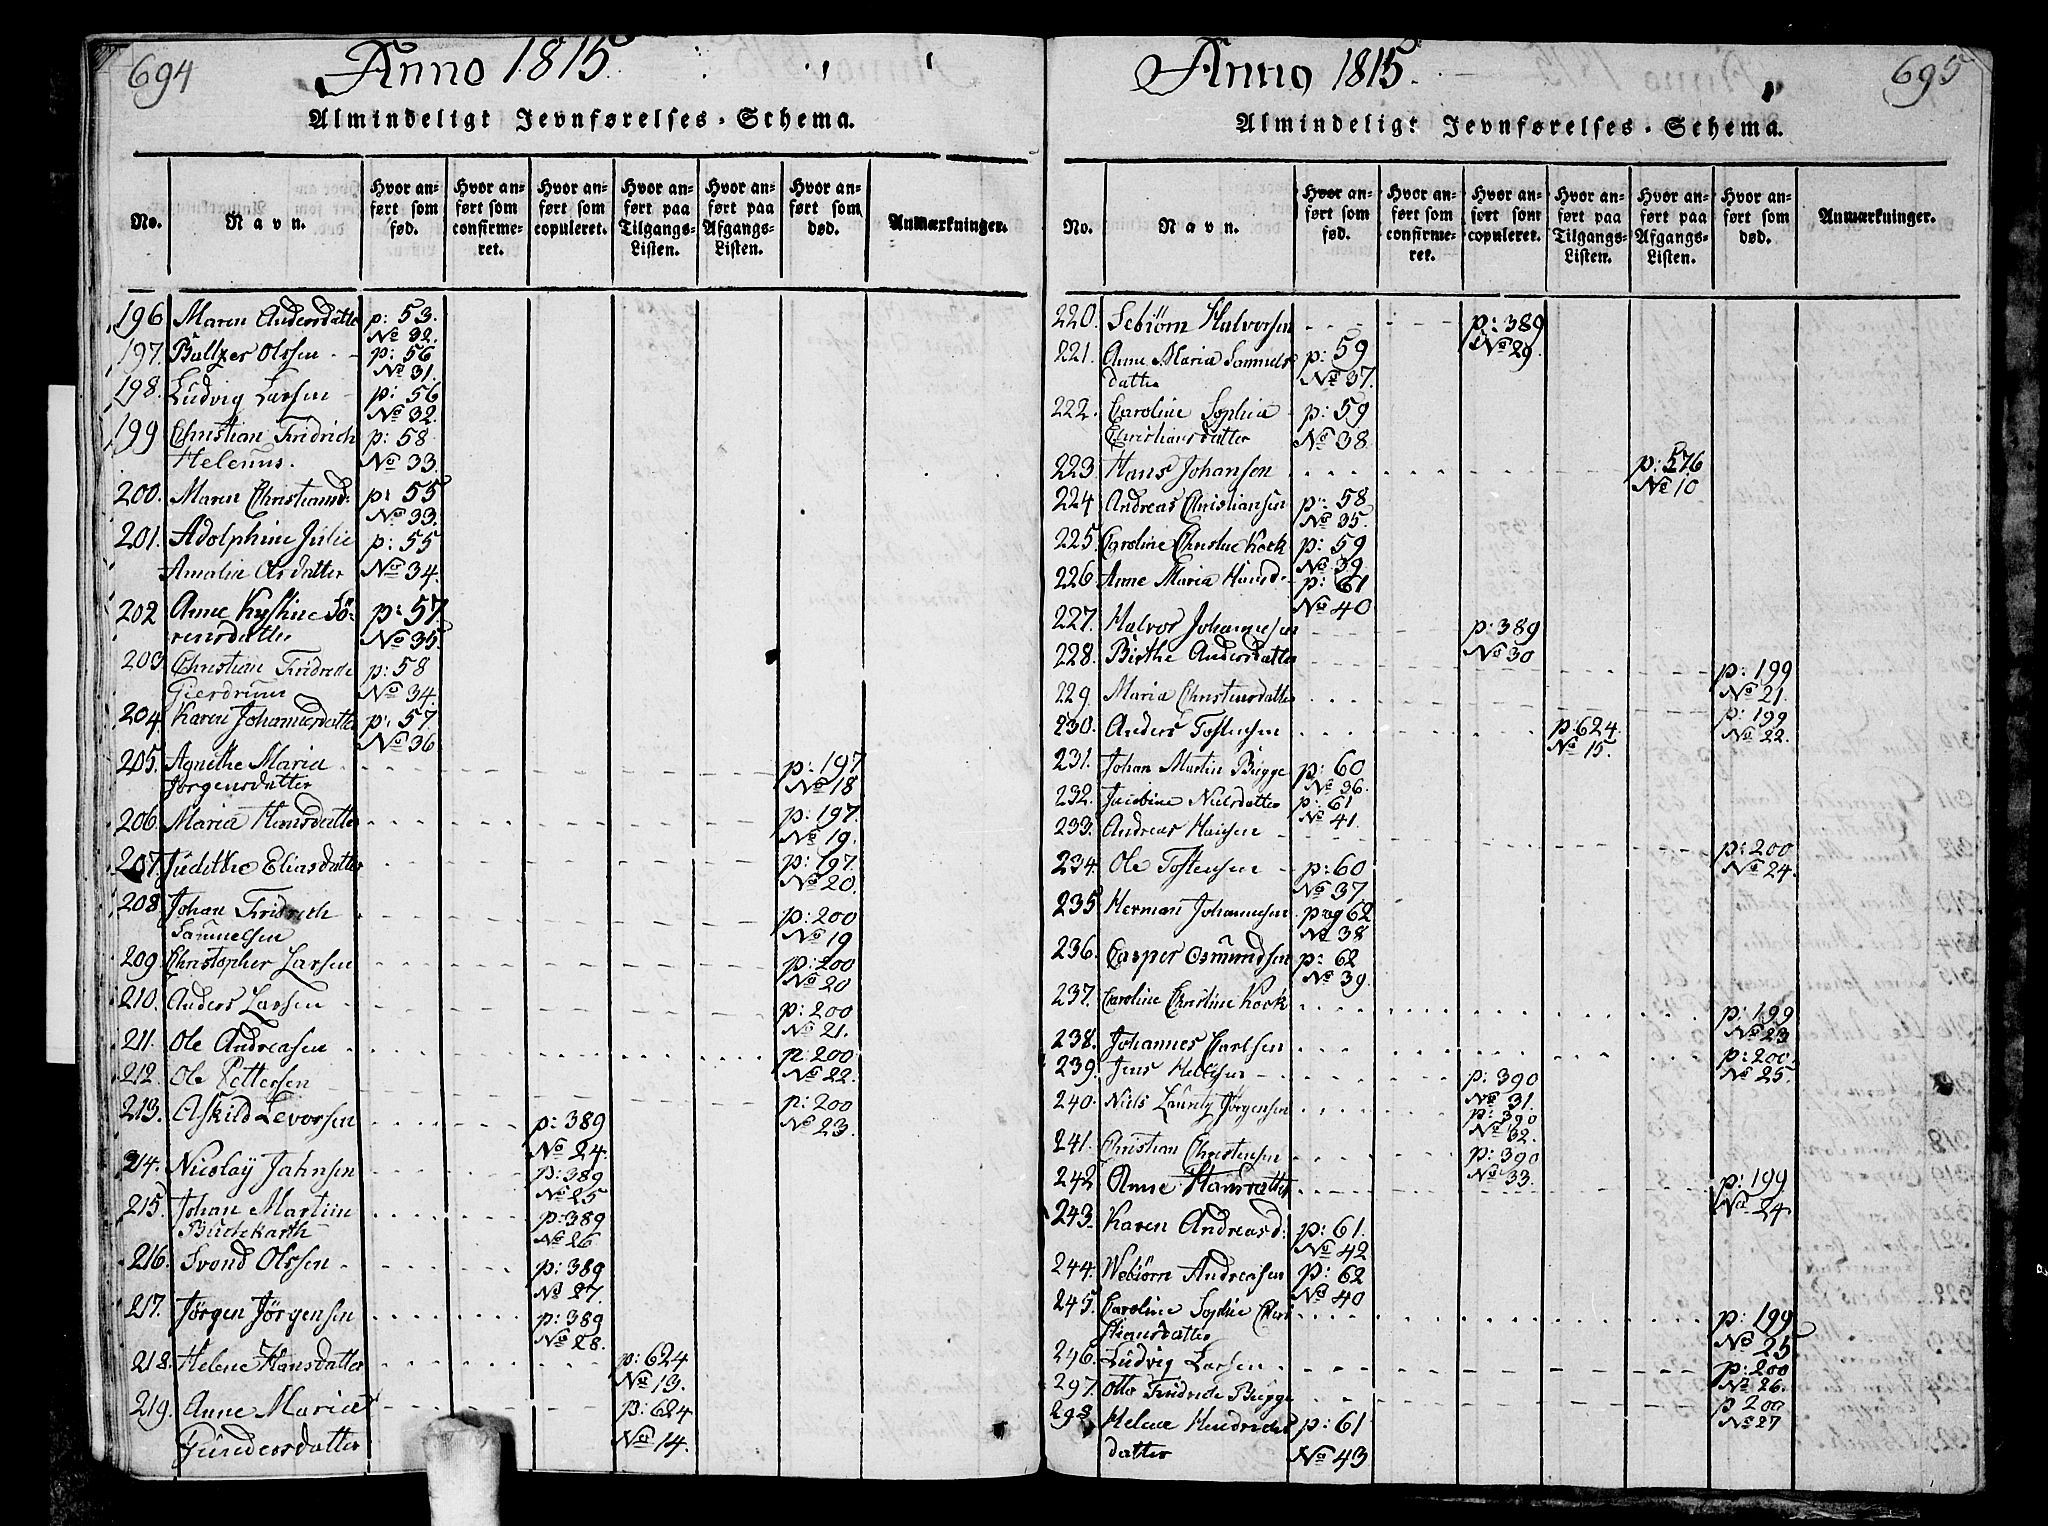 694
Anno 1815
Almindeligt Jevnførelses-Schema.
No. Navn. Hvor anført som fød. Hvor anført som confirmeret. Hvor anført som copuleret. Hvor anført paa Tilgangs-Listen. Hvor anført paa Afgangs-Listen. Hvor anført som død. Anmærkninger.
196 Maren Andersdatter p: 53.
No 32.
197. Baltzer Olssen - p: 56
No 31.
198. Ludvig Larsen - p: 56
No 32.
199 Christian Fridrich p: 58
Helenus. No 33.
200. Maren Christiansd: p: 55
No 33.
201. Adolphine Julie p: 55
Amalie Olsdatter No 34.
202 Anne Kirstine Sö- p: 57.
rensdatter No 35.
203 Christian Fridrich p: 58
Gierdrum No 34.
204. Karen Johannesdatter p: 57.
No 36
205. Agnethe Maria p: 197
Jørgensdatter No 18
206. Maria Hansdatter p: 197.
No 19.
207. Judithe Eliasdatter p: 197.
No 20.
208 Johan Fridrich p: 200
Samuelsen No 19
209. Christopher Larsen p: 200
No 20
210. Anders Larsen p: 200
No 21.
211. Ole Andreasen p: 200
No 22.
212. Ole Pettersen p: 200
No 23.
213. Askild Levorsen p: 389
No 24.
214. Nicolaÿ Jahnsen p: 389
No 25
215. Johan Martin p: 389
No 26
216. Svend Olssen p: 389
No 27.
217. Jørgen Jørgensen p: 389
No 28.
218. Helene Hansdatter p: 624
No 13.
219. Anne Maria p: 624
Gundersdatter No 14.
695
Anno 1815.
Almindeligt Jevnførelses-Schema.
No. Navn. Hvor anført som fød. Hvor anført som confirmeret. Hvor anført som copuleret. Hvor anført paa Tilgangs-Listen. Hvor anført paa Afgangs-Listen. Hvor anført som død. Anmærkninger.
220. Sebiørn Halvorsen p: 389
No 29.
221. Anne Maria Samuels p: 59
datter No 37.
222. Caroline Sophia p: 59
Christiansdatter No 38.
223. Hans Johansen p: 576
No 10
224. Andreas Christiansen p: 58
No 35.
225. Caroline Christine Kock p: 59
No 39
226. Anne Maria Hansd. p: 61
No 40
227. Halvor Johannesen p: 389
No 30
228. Birthe Andersdatter p: 199
No 21.
229. Maria Christensdatter p: 199
No 22.
230. Anders Tostensen p. 624.
No 15.
231. Johan Martin Bugge p: 60
No 36.
232. Jacobine Nielsdatter p: 61
No 41.
233. Andreas p: 200
No 24.
234. Ole Tostensen p: 60
No 37
235 Herman Johannesen pag 62
No 38
236. Casper Osmundsen p: 62
No 39.
237. Caroline Christine Kock p: 199
No 23
238. Johannes Carlsen p: 200
No 25.
239. Jens p: 390
No 31.
240. Niels Jørgensen p: 390
No 32.
241. Christian Christensen p: 390
No 33.
242 Anne Hansdatter p: 199
No 24
243. Karen Andreasd: p: 61.
No 42
244. Webiørn Andreasen p: 62
No 40
245. Caroline Sophie Chri p: 199
stiansdatter No 25
246. Ludvig Larsen p: 200
No 26.
297. Otto Fridrich Bugge p 200
No 27
298 Helene Hendrichs p: 61
datter No 43